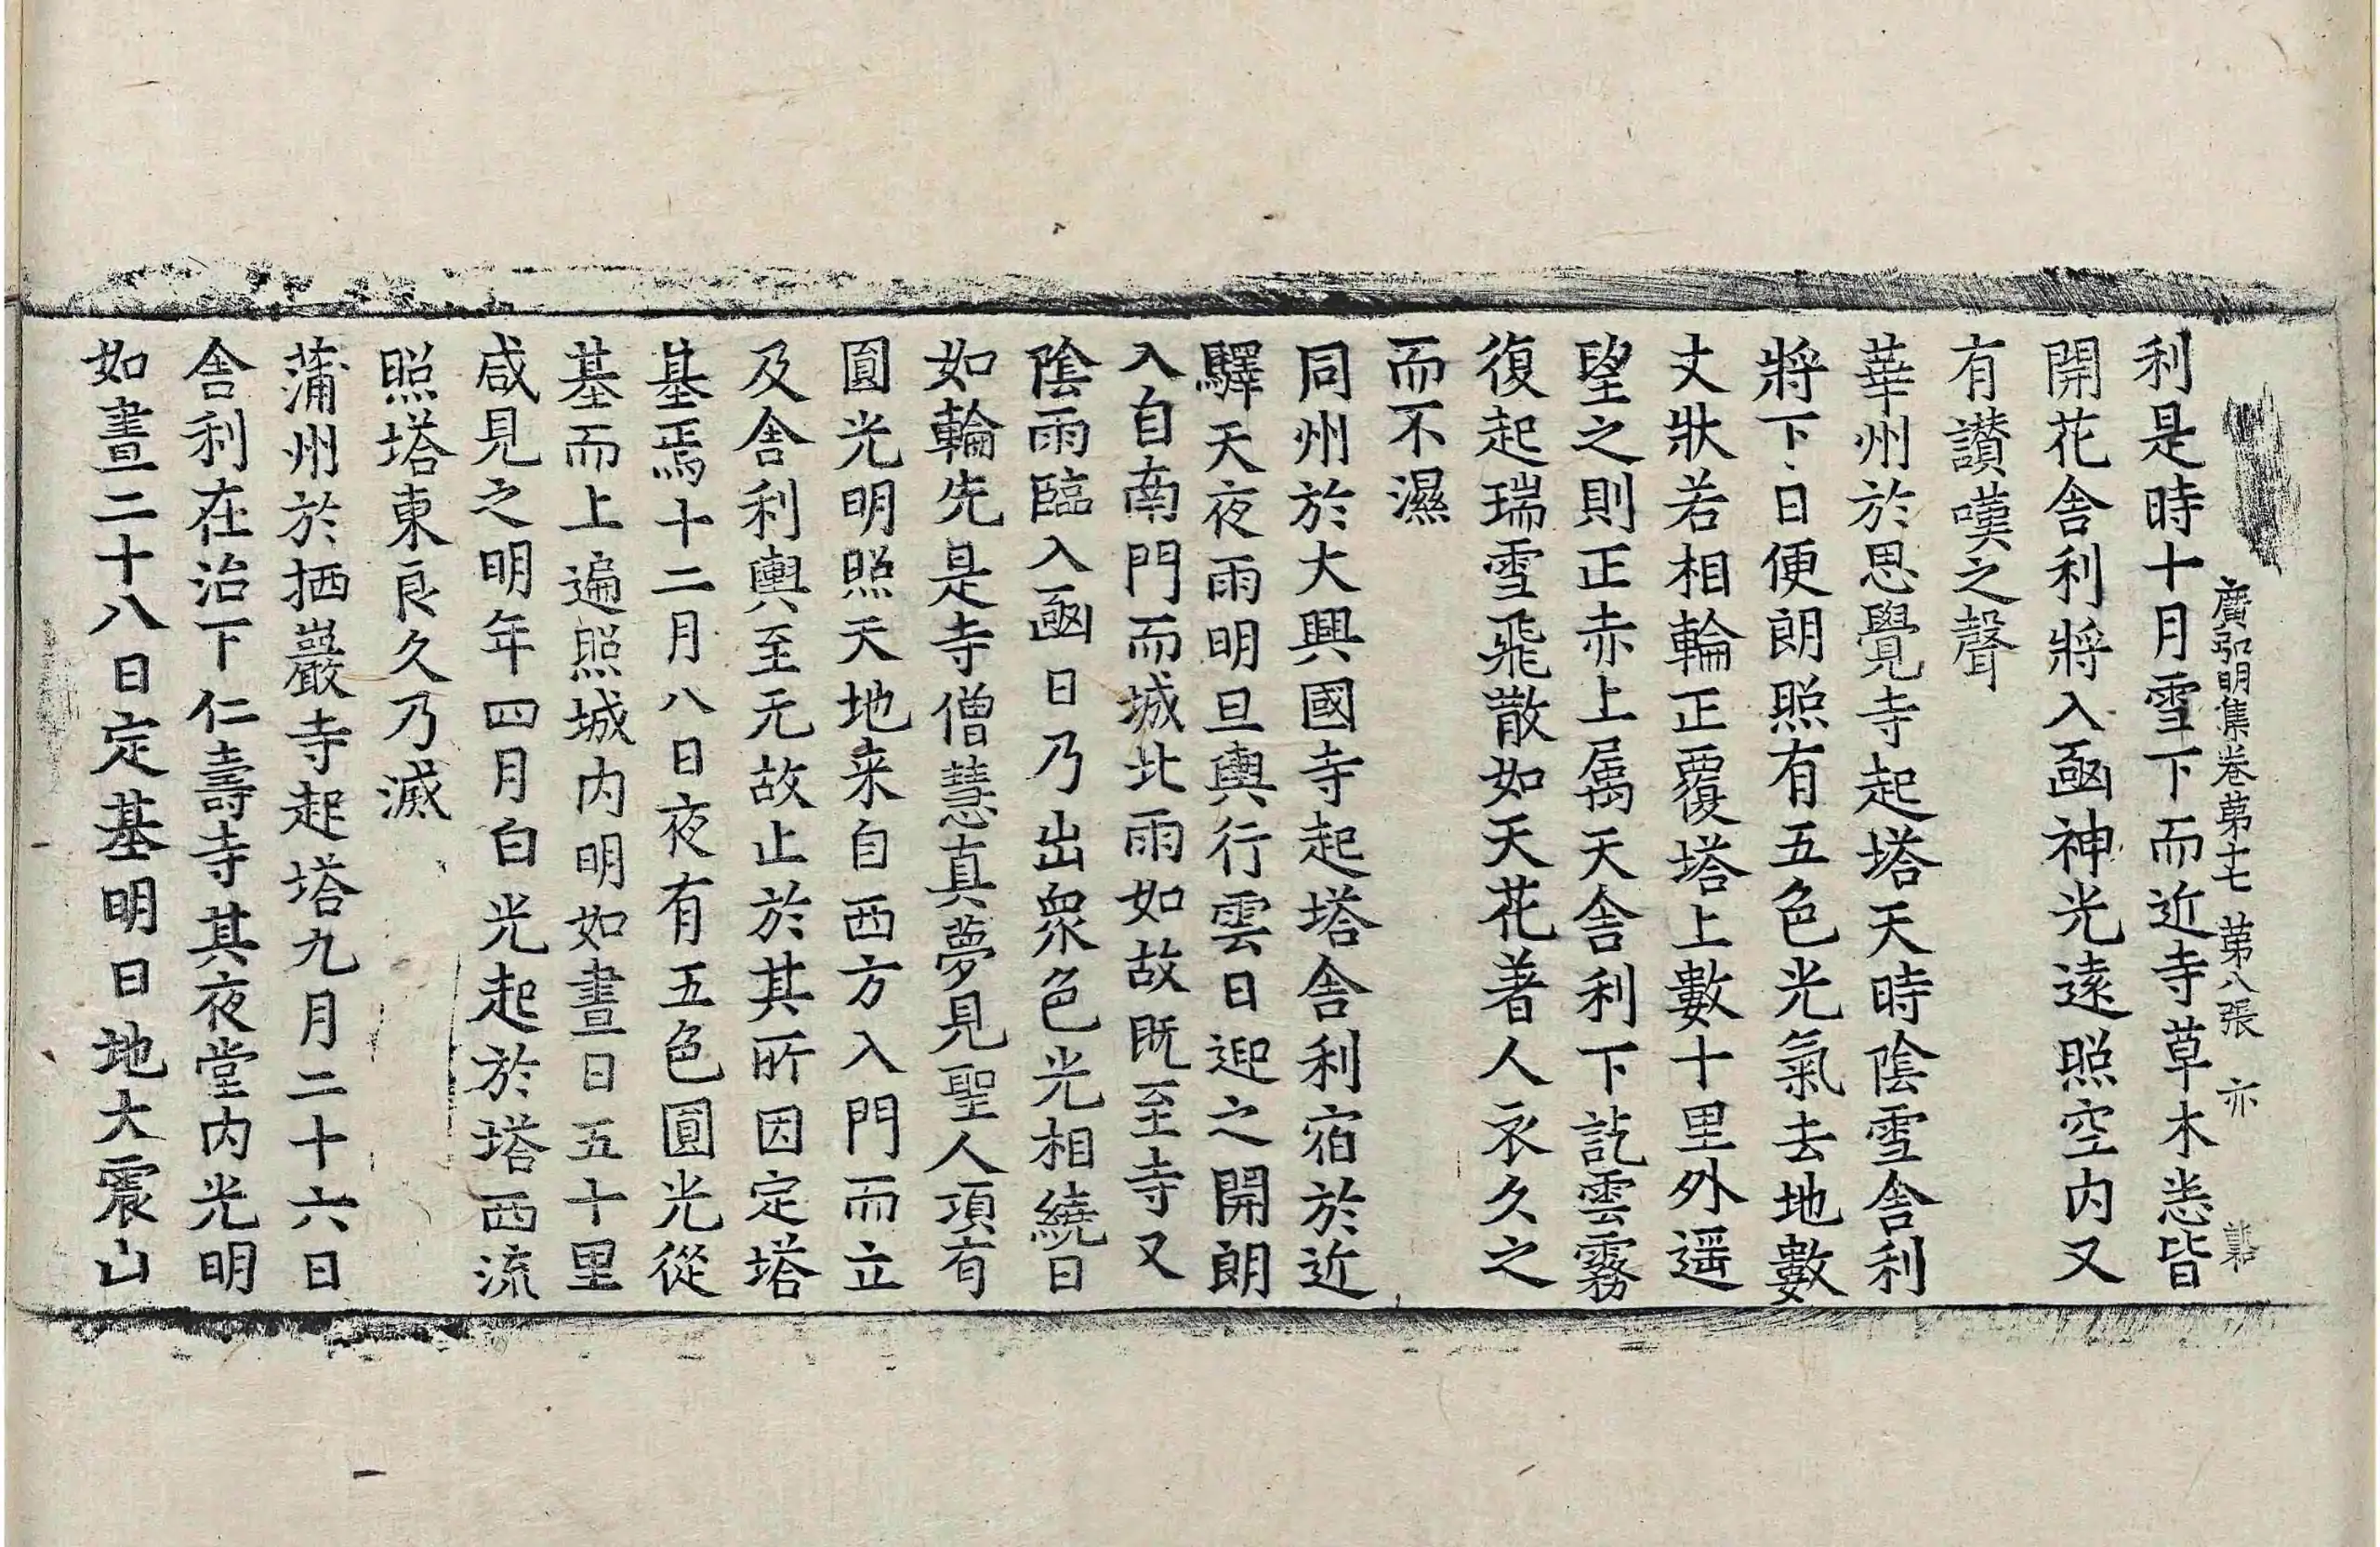 廣弘明集卷第十七 第八張 亦
利是時十月雪下而近寺草木悉皆
開花舍利將入函神光遠照空内又
有讃嘆之聲
華州於思覺寺起塔天時陰雪舍利
將下日便朗照有五色光氣去地數
丈狀若相輪正覆塔上數十里外遥
望之則正赤上属天舍利下訖雲霧
復起瑞雪飛散如天花著人衣久之
而不濕
同州於大興國寺起塔舍利宿於近
驛天夜雨明旦輿行雲日迎之開朗
入自南門而城北雨如故旣至寺又
陰雨臨入函日乃出衆色光相繞日
如輪先是寺僧慧真夢見聖人項有
圓光明照天地来自西方入門而立
及舍利輿至无故止於其所因定塔
基焉十二月八日夜有五色圓光從
基而上遍照城内明如晝日五十里
咸見之明年四月白光起於塔西流
照塔東良久乃滅
蒲州於栖巖寺起塔九月二十六日
舍利在治下仁壽寺其夜堂内光明
如晝二十八日定基明日地大震山